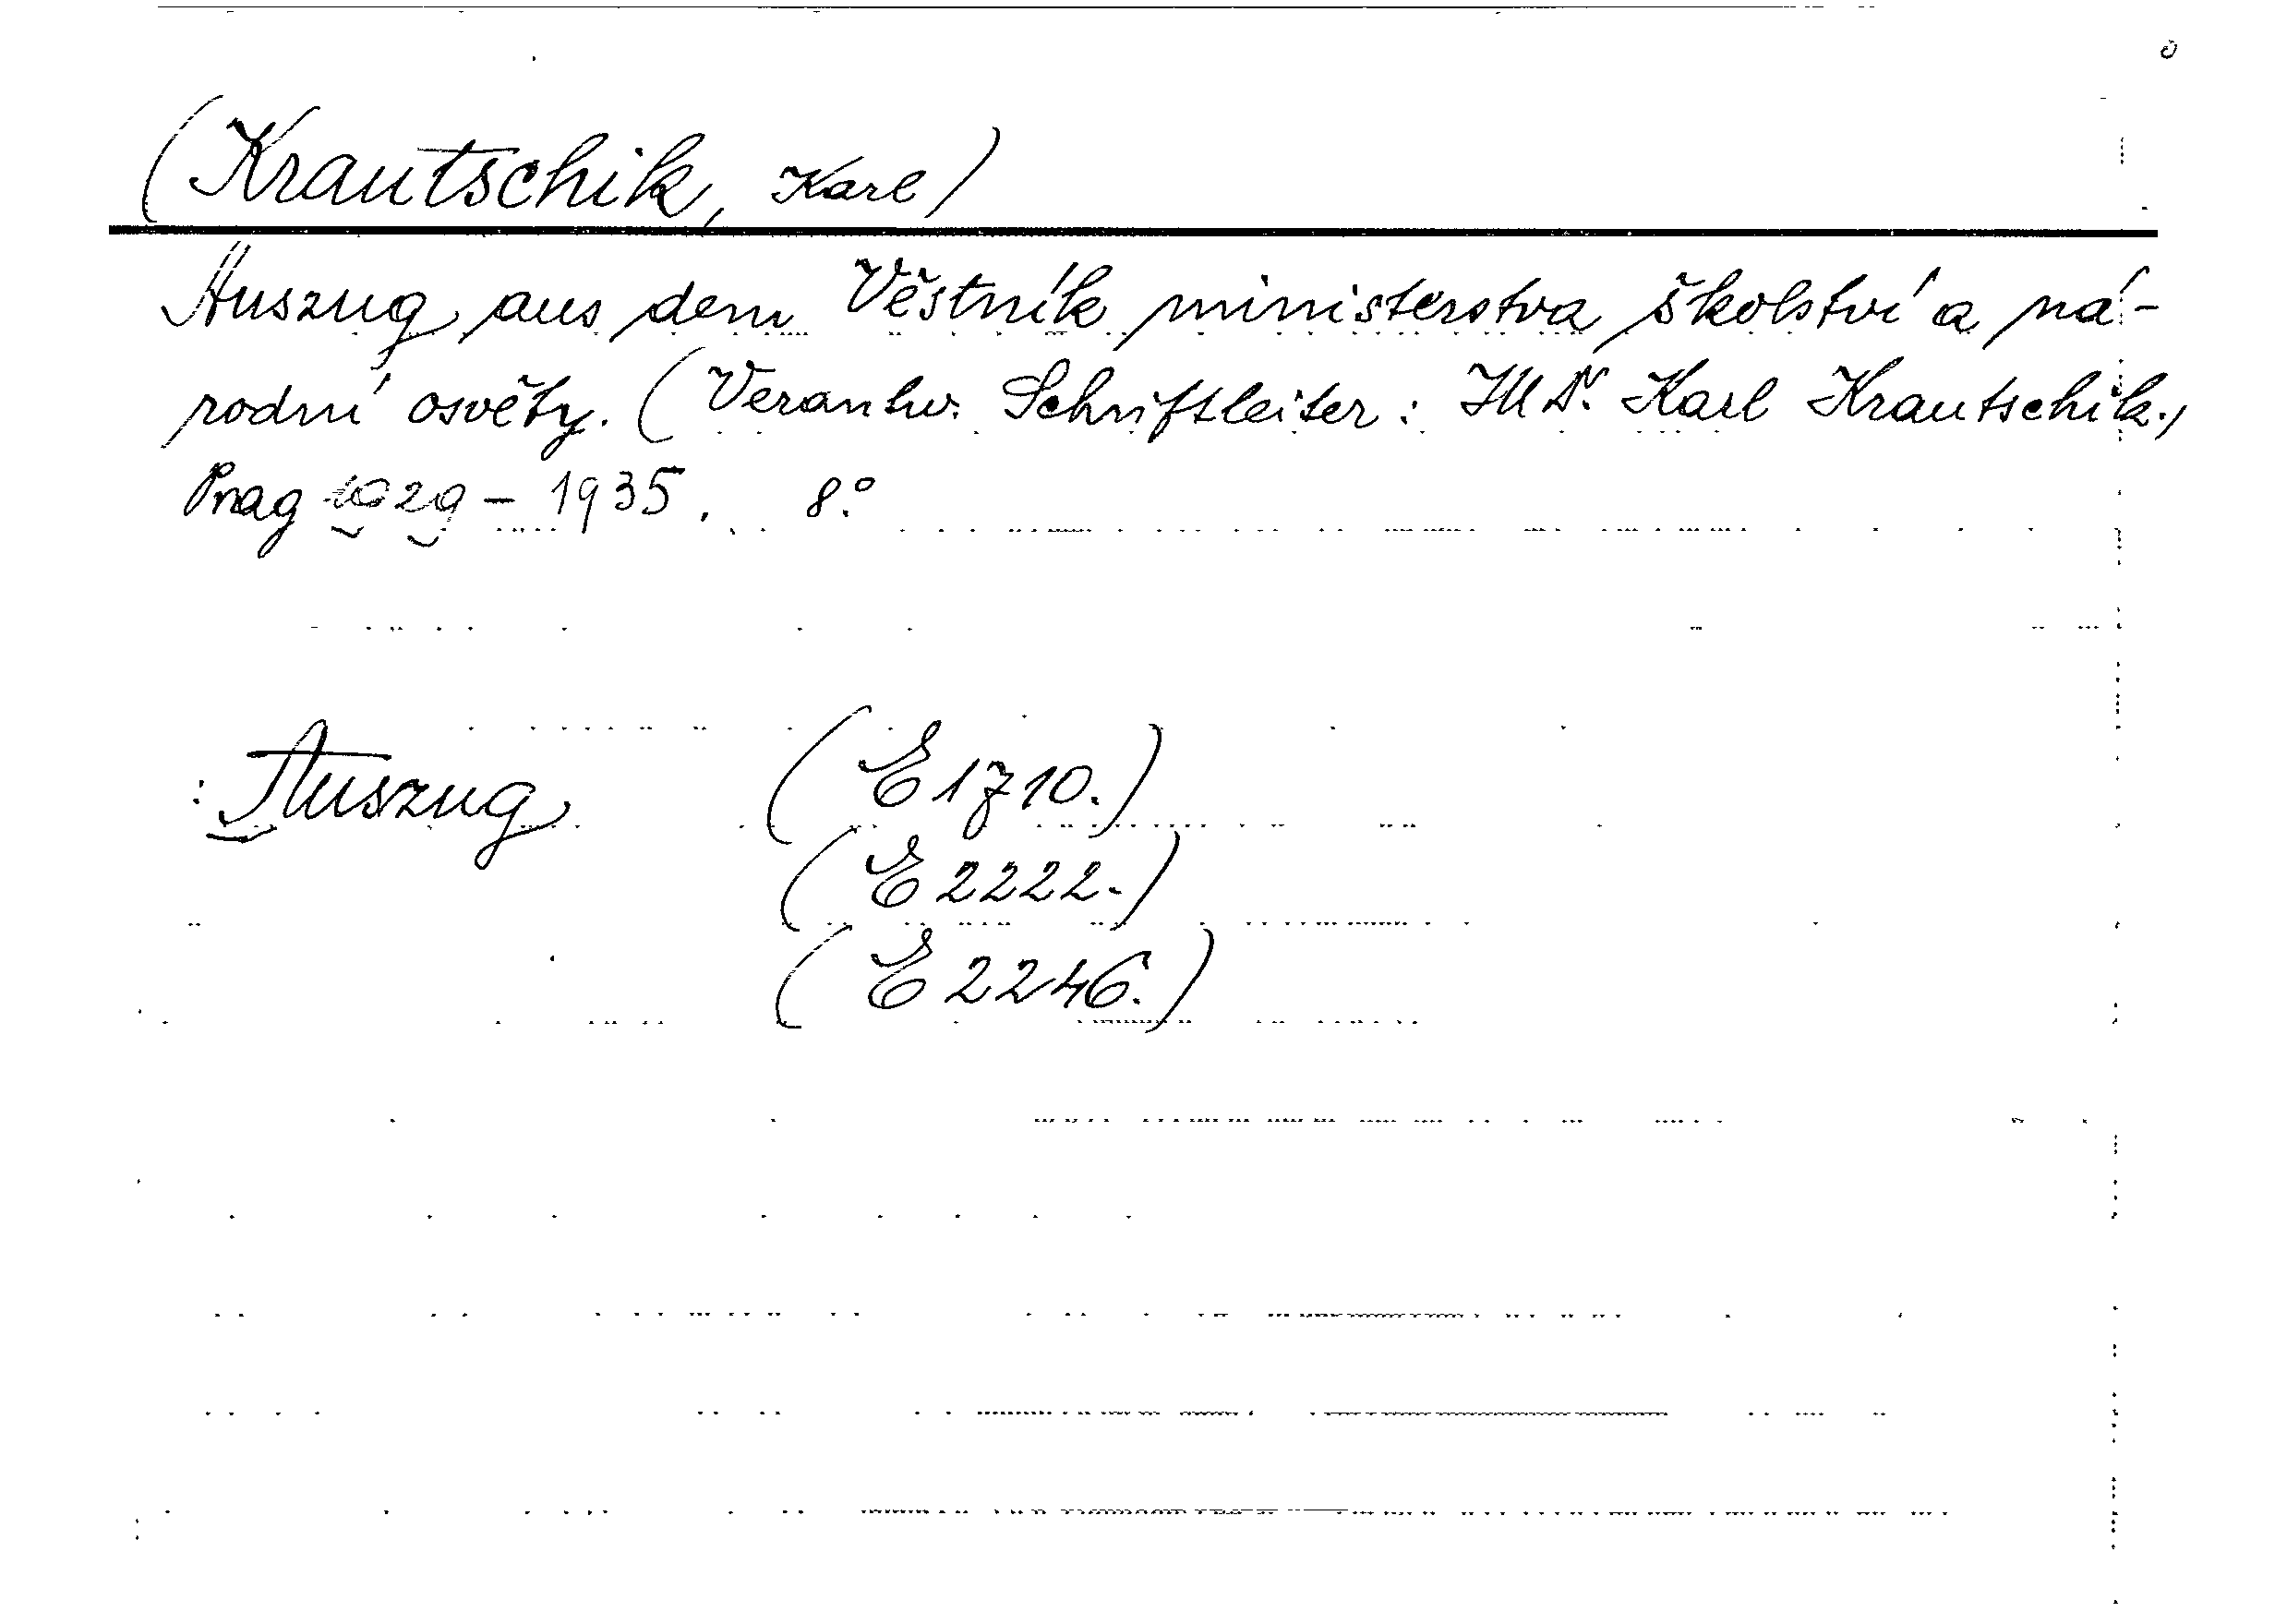 (Krautschik, Karl)
Auszug aus dem Věstník ministerstva školství a ná-
rodní osvěty. (Verantw. Schriftleiter: Karl Krautschik.)
Prag 1929 - 1935. 8°.
: Auszug (E 1710.)
(E 2222.)
(E 2246.)